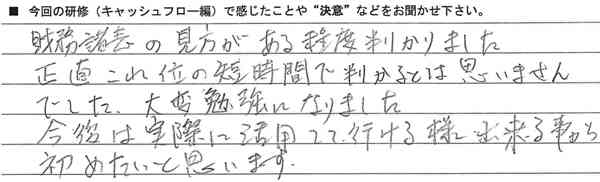 ■ 今回の研修（キャッシュフロー編）で感じたことや“決意”などをお聞かせ下さい。
財務諸表の見方がある程度判かりました
正直これ位の短時間で判かるとは思いません
でした、大変勉強になりました
今後は実際に活用して行ける様に出来る事から
初めたいと思います.